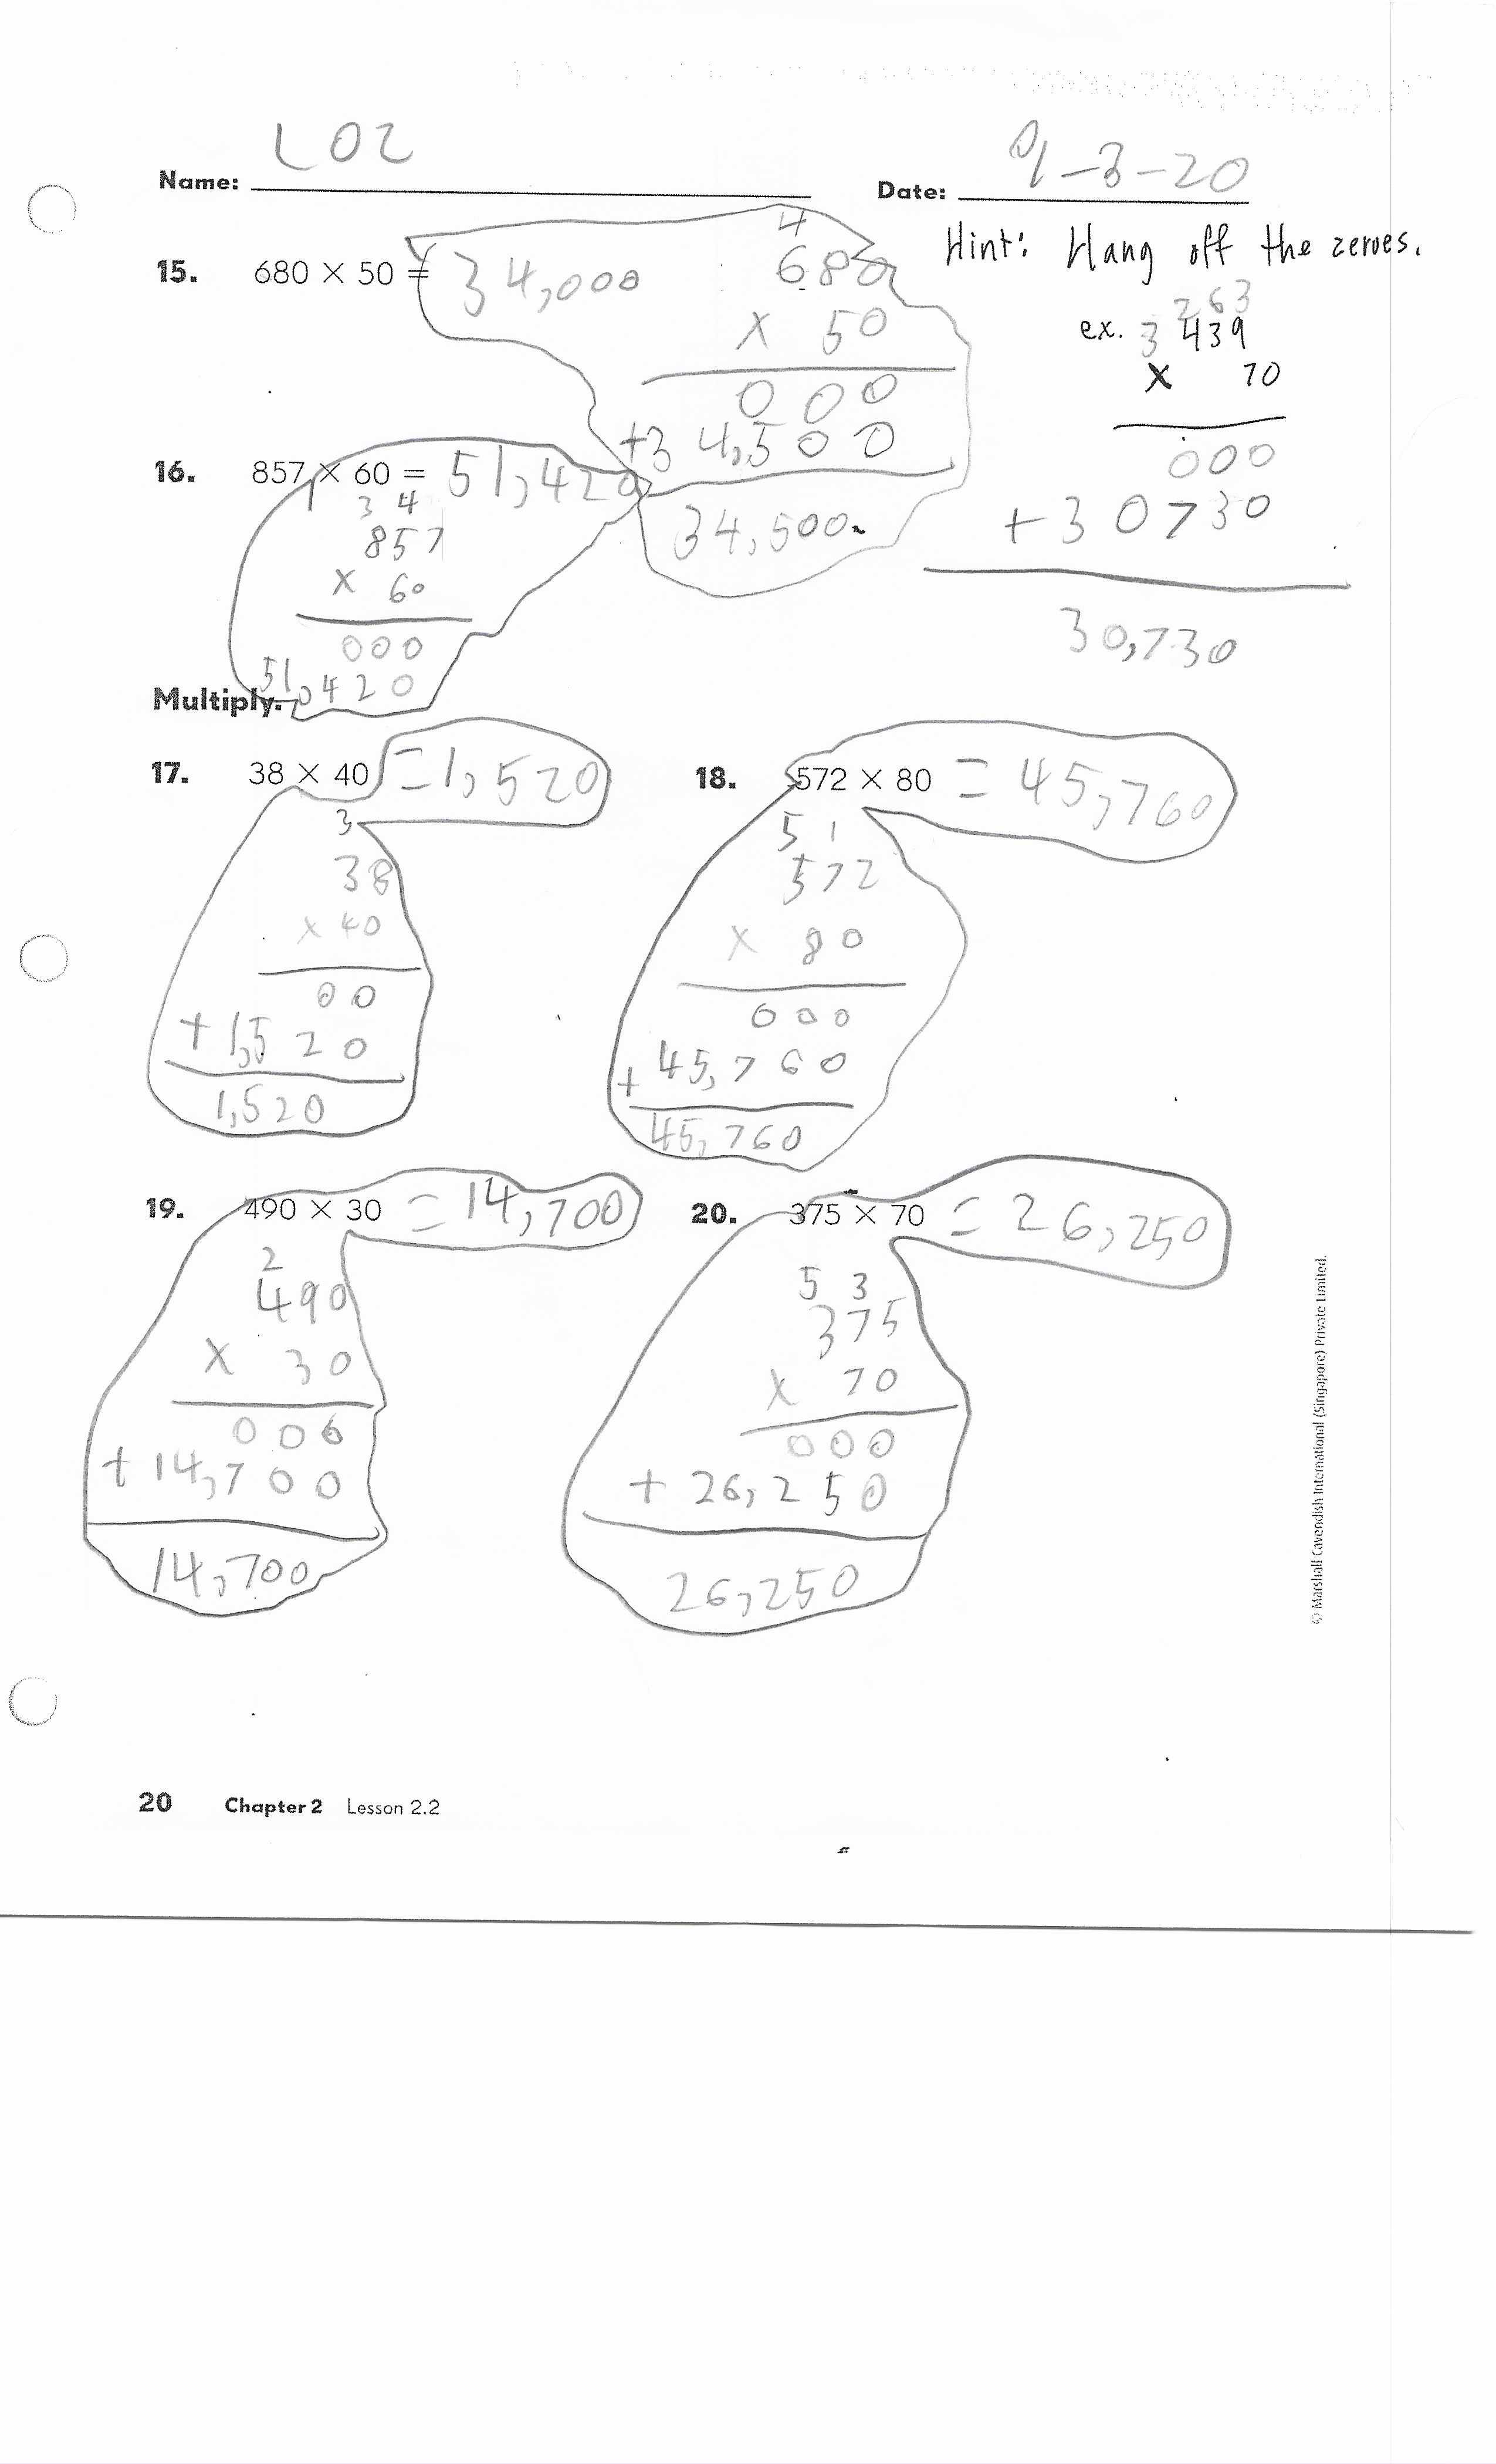 Name: LOZ
Date: 9-3-20
Hint: Hang off the zeroes.
15. 680 × 50 = 34,000
4
680
x 50
000
+34,500
34,500
263
ex. 3 439
x 70
000
+30730
30,730
16. 857 × 60 = 51,420
3 4
857
x 60
000
51,420
Multiply.
17. 38 × 40 = 1,520
3
38
x 40
00
+ 1,520
1,520
18. 572 × 80 = 45,760
5 1
572
x 80
000
+ 45,760
45,760
19. 490 × 30 = 14,700
2
490
x 30
000
+ 14,700
14,700
20. 375 × 70 = 26,250
5 3
375
x 70
000
+ 26,250
26,250
© Marshall Cavendish International (Singapore) Private Limited.
20 Chapter 2 Lesson 2.2